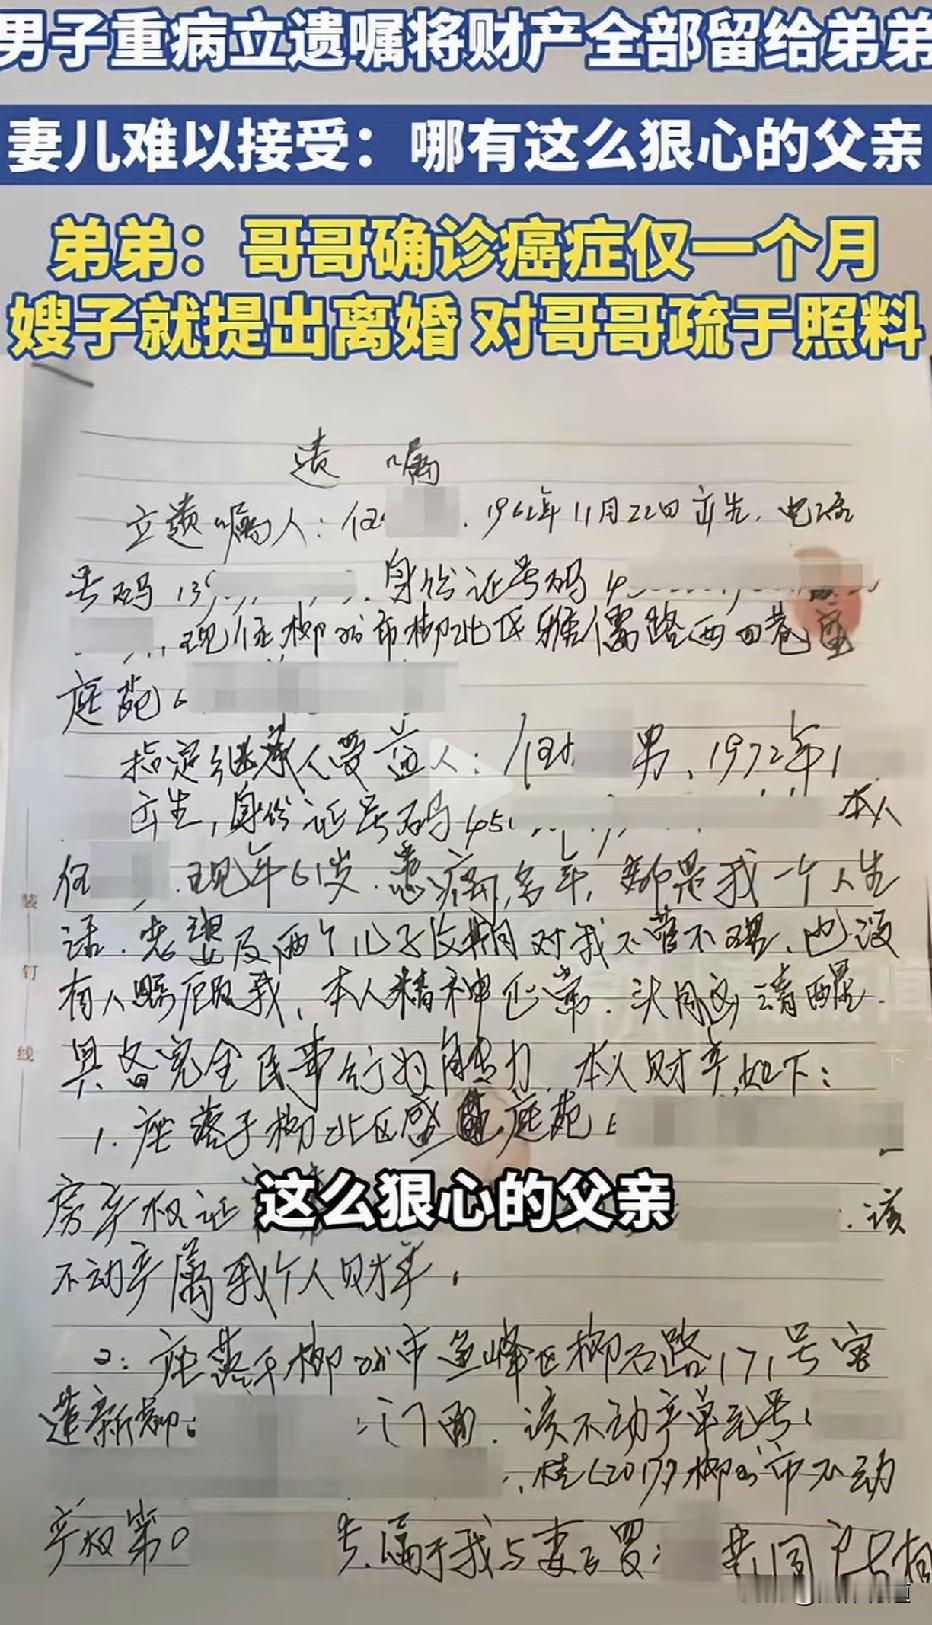 男子重病立遗嘱将财产全部留给弟弟
妻儿难以接受：哪有这么狠心的父亲
弟弟：哥哥确诊癌症仅一个月
嫂子就提出离婚 对哥哥疏于照料
遗 嘱
立遗嘱人：任 . 1962年11月22日出生. 电话
号码13 . 身份证号码4
现住柳州市柳北区雅儒路西四巷盛
庭苑
指定继承人受益人：任 男、1972年1
出生, 身份证号码45 本人
任 . 现年61岁. 患病多年, 都是我一个人生
活. 老婆及两个儿子长期对我不管不理、也没
有人照顾我, 本人精神正常. 头脑清醒.
具备完全民事行为能力. 本人财产如下：
1. 座落于柳北区盛 庭苑
房产权证 . 该
这么狠心的父亲
不动产属我个人财产.
2：座落于柳州市鱼峰区柳石路171号
新 门面. 该不动产单元号：
桂(2017)柳州市不动
产权第0 属于我与妻子罗 共同
装
钉
线